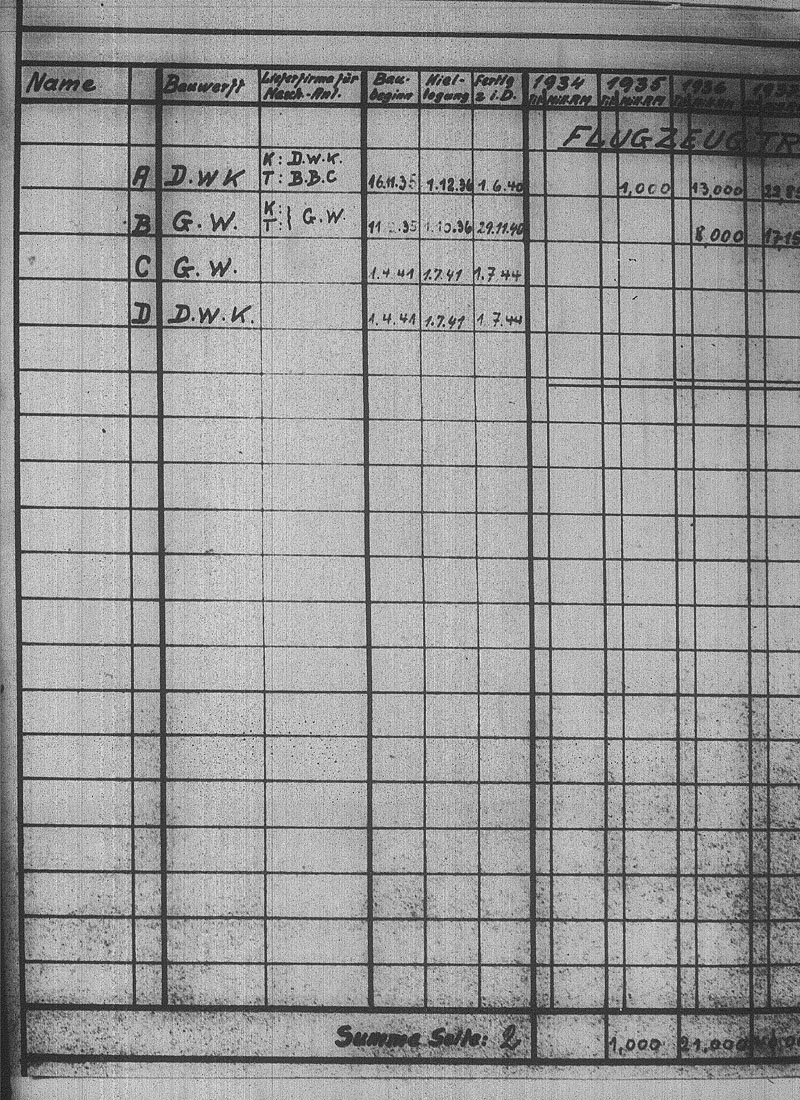 Name Bauwerft Lieferfirma für Masch.-Anl. Bau-beginn Kiel-legung Fertig z. i. D. 1934 1935 1936
FLUGZEUG TR
A D.W.K K: D.W.K. T: B.B.C 16.11.35 1.12.36 1.6.40 1,000 13,000
B G.W. K: T: } G.W. 29.11.40 8,000
C G.W. 1.4.41 1.7.41 1.7.44
D D.W.K. 1.4.41 1.7.41 1.7.44
Summe Seite: 2 1,000 21,000